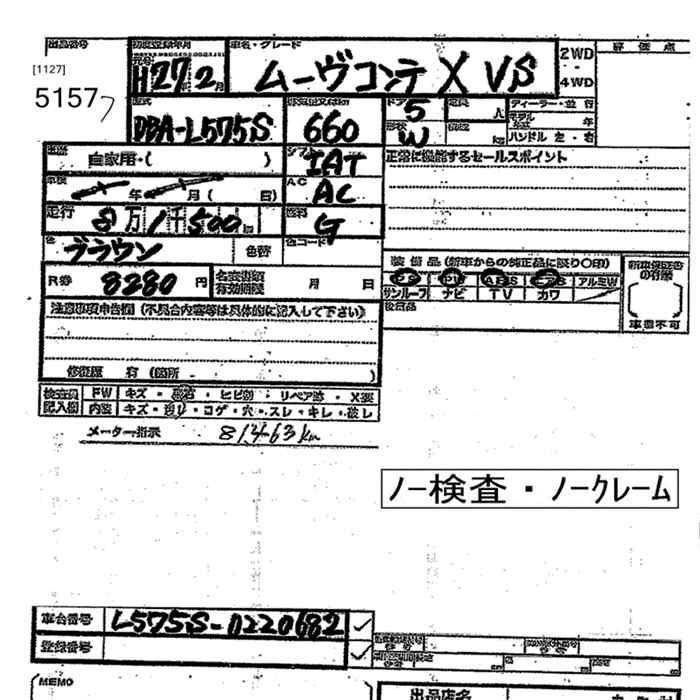 出品番号
[1127]
5157
初度登録年月
H27年2月
車名・グレード
ムーヴコンテ X VS
2WD
・
4WD
評価点
型式
DBA-L575S
660
ドア 5
形状 W
定員 人
積載 kg
ディーラー・並行
モデル年式 年
ハンドル 左・右
車歴
自家用・( )
シフト
IAT
正常に機能するセールスポイント
車検
年 月 ( 日)
AC
AC
走行
8万1千500km
燃料
G
色
ブラウン
色替
色コード
R券
8280 円
名変書類有効期限 月 日
装備品(新車からの純正品に限り○印)
PS PW ABS エアB アルミW
サンルーフ ナビ TV カワ
後日品
新車保証書の有無
車書不可
注意事項申告欄(不具合内容等は具体的に記入して下さい)
修復歴 有(箇所 )
検査員記入欄
FW キズ・飛石・ヒビ割・リペア跡・X要
内装 キズ・汚れ・コゲ・穴・スレ・キレ・破レ
メーター指示 81463km
ノー検査・ノークレーム
車台番号 L575S-0220682
登録番号
MEMO
出品店名